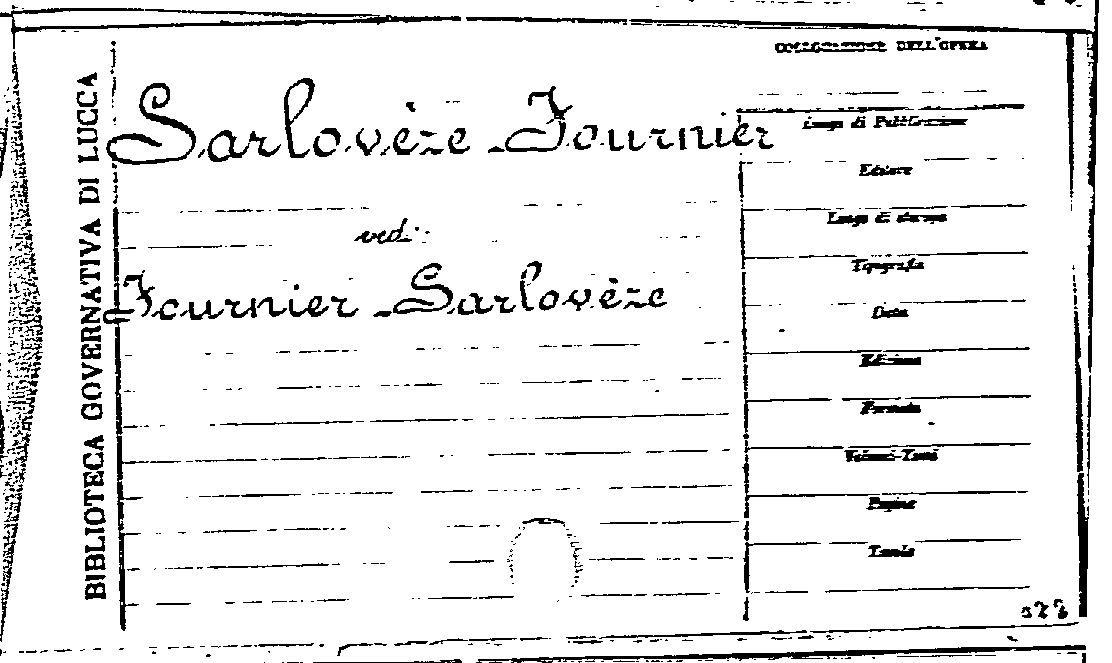 BIBLIOTECA GOVERNATIVA DI LUCCA
Sarlovèze Fournier
vedi:
Fournier - Sarlovèze
COLLOCAZIONE DELL'OPERA
Luogo di Pubblicazione
Editore
Luogo di stampa
Tipografia
Data
Edizione
Formato
Volumi-Tomi
Pagine
Tavole